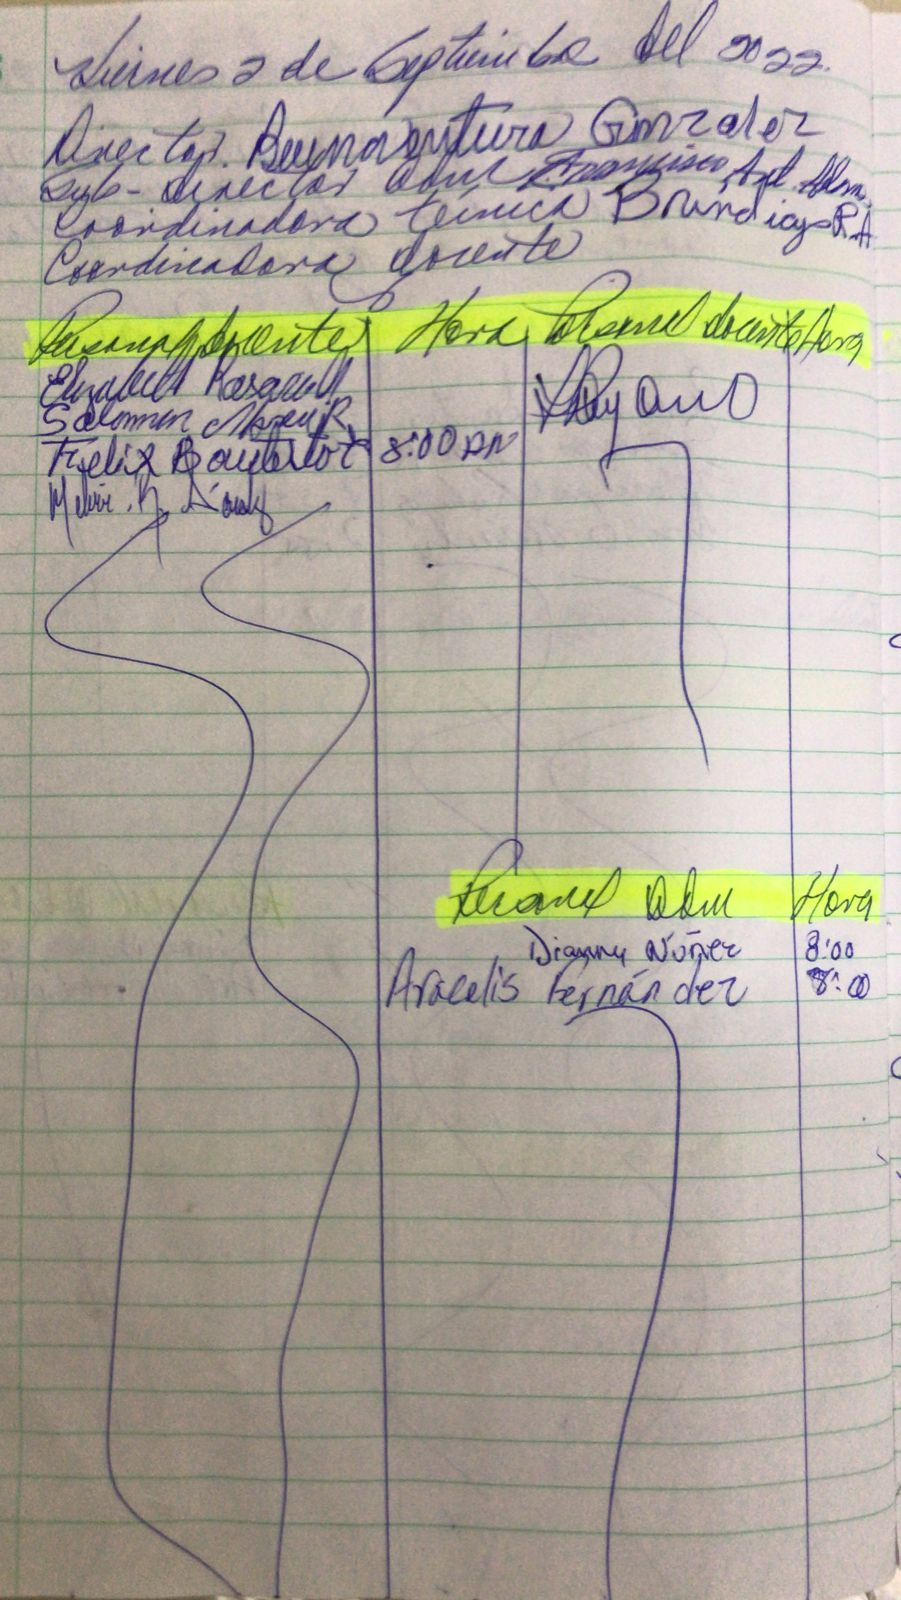 Viernes 2 de Septiembre del 2022.
Director. Buenaventura Gonzalez
Sub-director Adm Francisco
Coordinadora técnica Brundicys P.A
Coordinadora docente
Personal docente Hora Personal docente Hora
Elizabeth
Salomon
Felix Bautista 8:00 AM
Personal Adm Hora
Dianny Núñez 8:00
Aracelis Fernández 8:00